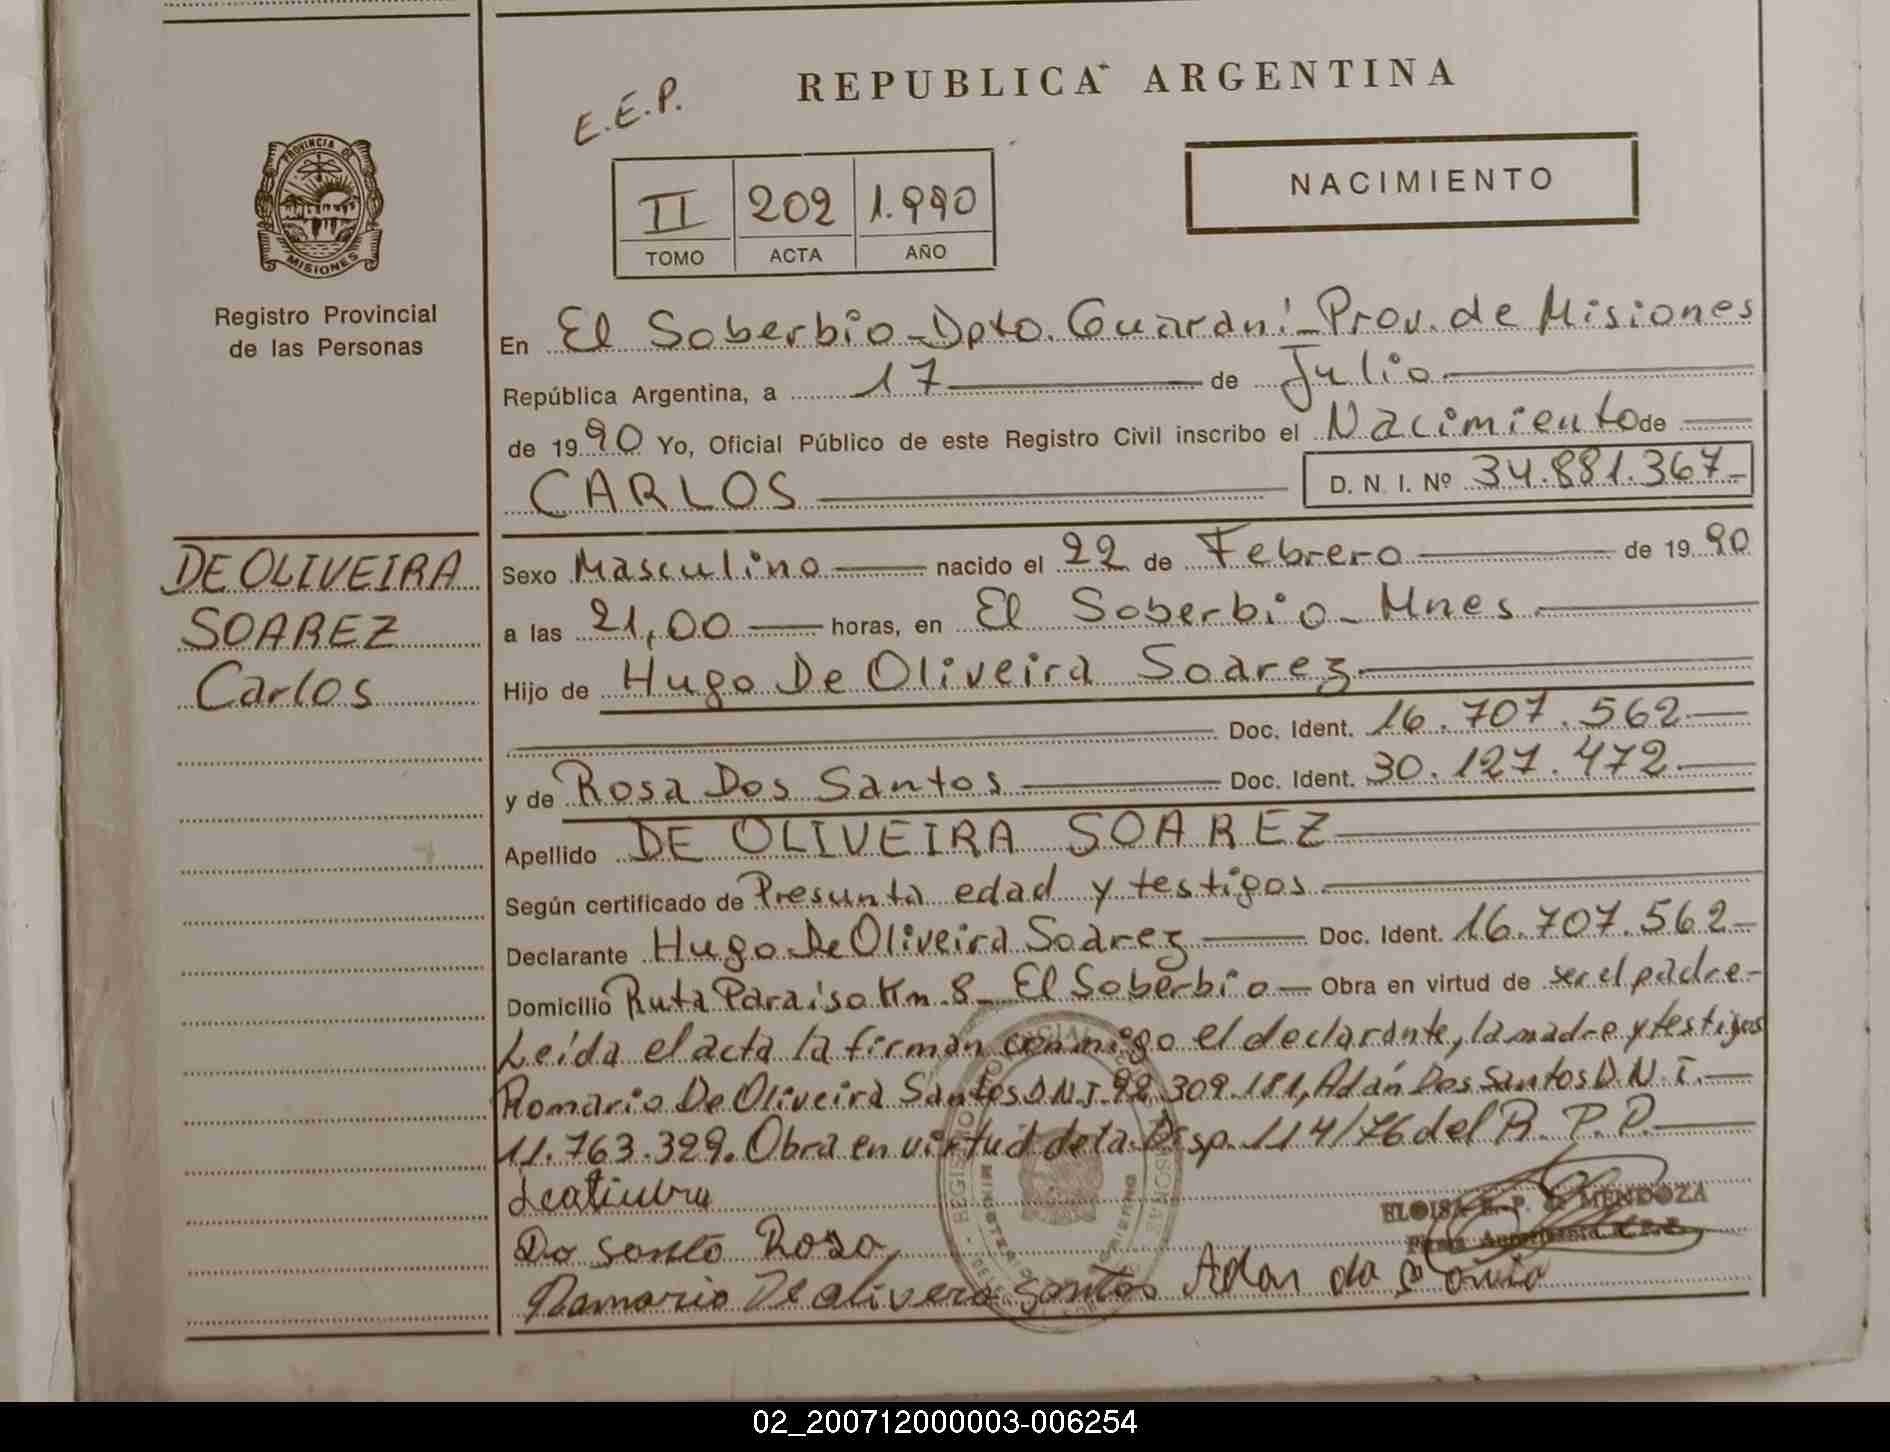 E.E.P.
REPUBLICA ARGENTINA
PROVINCIA DE
MISIONES
NACIMIENTO
II 202 1.990
TOMO ACTA AÑO
Registro Provincial
de las Personas
En El Soberbio - Dpto. Guaraní - Prov. de Misiones
República Argentina, a 17 de Julio
de 1990 Yo, Oficial Público de este Registro Civil inscribo el Nacimiento de
CARLOS D. N. I. Nº 34.881.367-
DE OLIVEIRA
SOAREZ
Carlos
Sexo Masculino nacido el 22 de Febrero de 1990
a las 21,00 horas, en El Soberbio - Mnes
Hijo de Hugo De Oliveira Soarez
Doc. Ident. 16.707.562
y de Rosa Dos Santos Doc. Ident. 30.127.472
Apellido DE OLIVEIRA SOAREZ
Según certificado de Presunta edad y testigos
Declarante Hugo De Oliveira Soarez Doc. Ident. 16.707.562-
Domicilio Ruta Paraíso Km 8 - El Soberbio - Obra en virtud de ser el padre-
Leída el acta la firman conmigo el declarante, la madre y testigos
Romario De Oliveira Santos D.N.I. 92.309.181, Adán Dos Santos D.N.I.
11.763.329. Obra en virtud de la Disp. 114/76 del R. P. P.
ELOISA E. P. de MENDOZA
Do Santo Rosa
Ramario De olivera santos Adan da
02_200712000003-006254